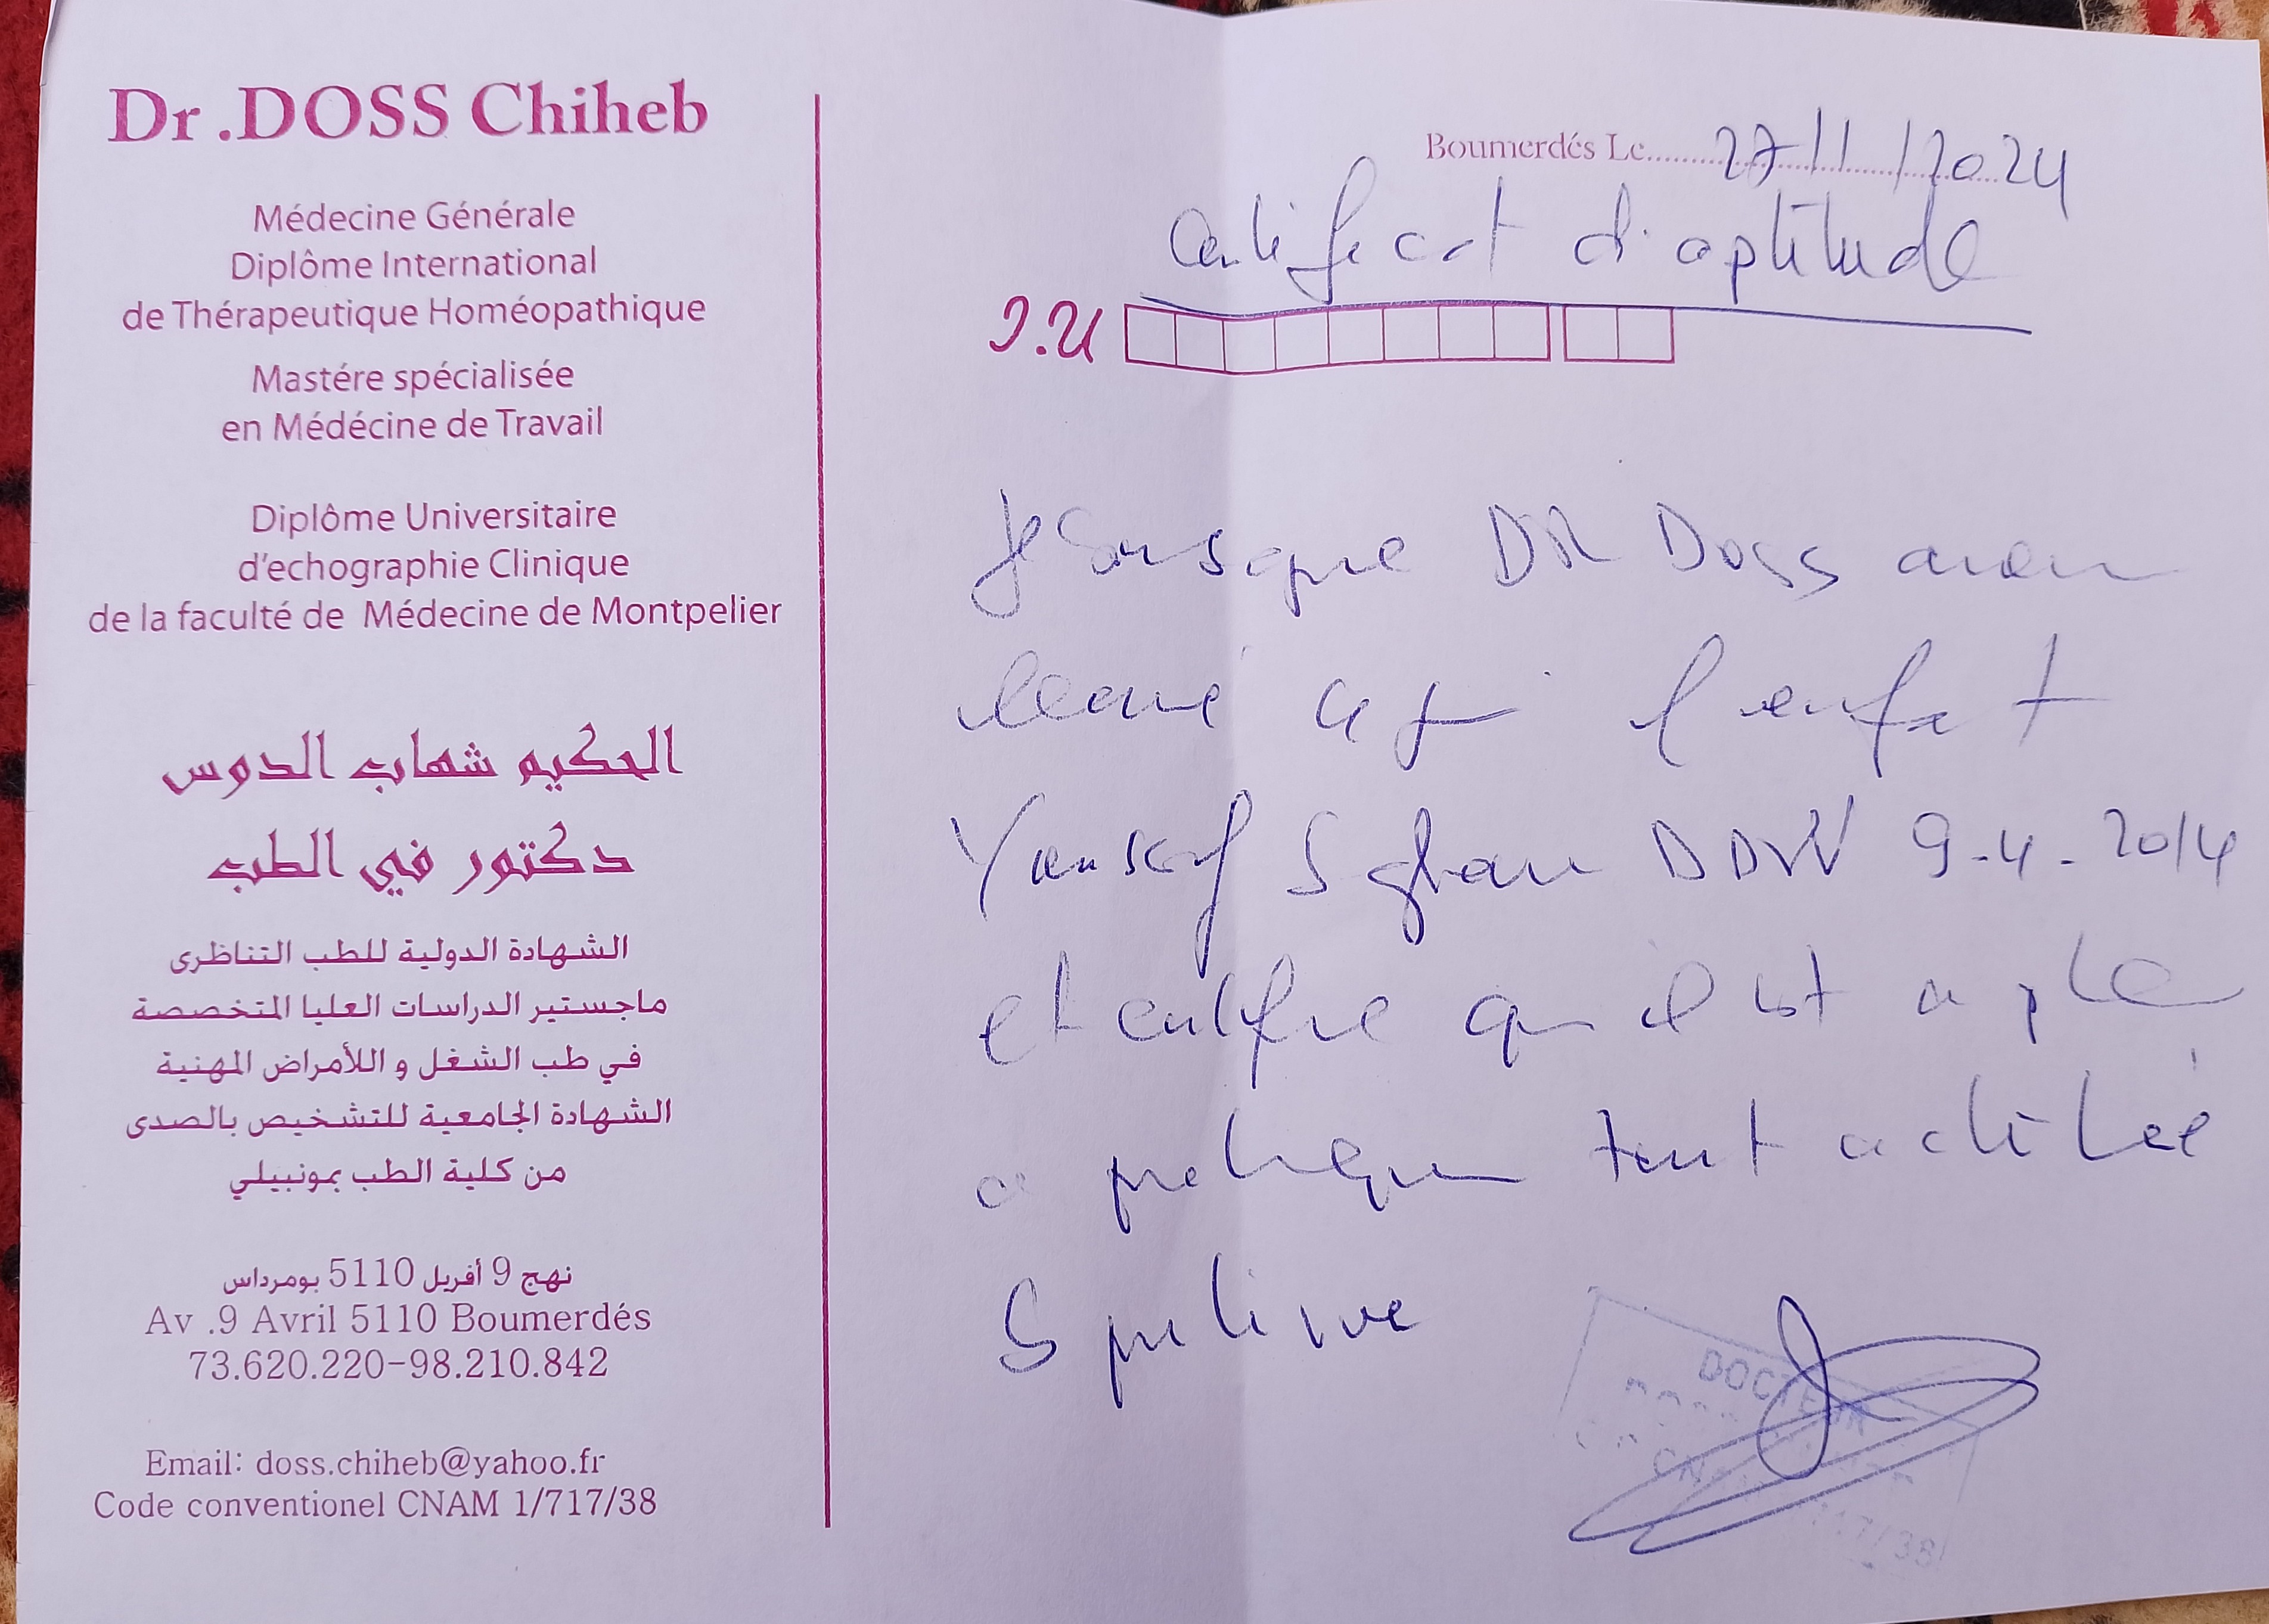 Dr .DOSS Chiheb
Médecine Générale
Diplôme International
de Thérapeutique Homéopathique
Mastére spécialisée
en Médécine de Travail
Diplôme Universitaire
d'echographie Clinique
de la faculté de Médecine de Montpelier
الحكيم شهاب الدوس
دكتور في الطب
الشهادة الدولية للطب التناظري
ماجستير الدراسات العليا المتخصصة
في طب الشغل و اللأمراض المهنية
الشهادة الجامعية للتشخيص بالصدى
من كلية الطب بمونبيلي
نهج 9 أفريل 5110 بومرداس
Av .9 Avril 5110 Boumerdés
73.620.220-98.210.842
Email: doss.chiheb@yahoo.fr
Code conventionel CNAM 1/717/38
Boumerdés Le 27/11/2024
Certificat d'aptitude
I.U
Je soussigné DR Doss avoir
examiné ce jour l'enfant
Youssef DDN 9-4-2014
et certifie qu'il est apte
a pratiquer tout activité
Sportive
DOCTEUR